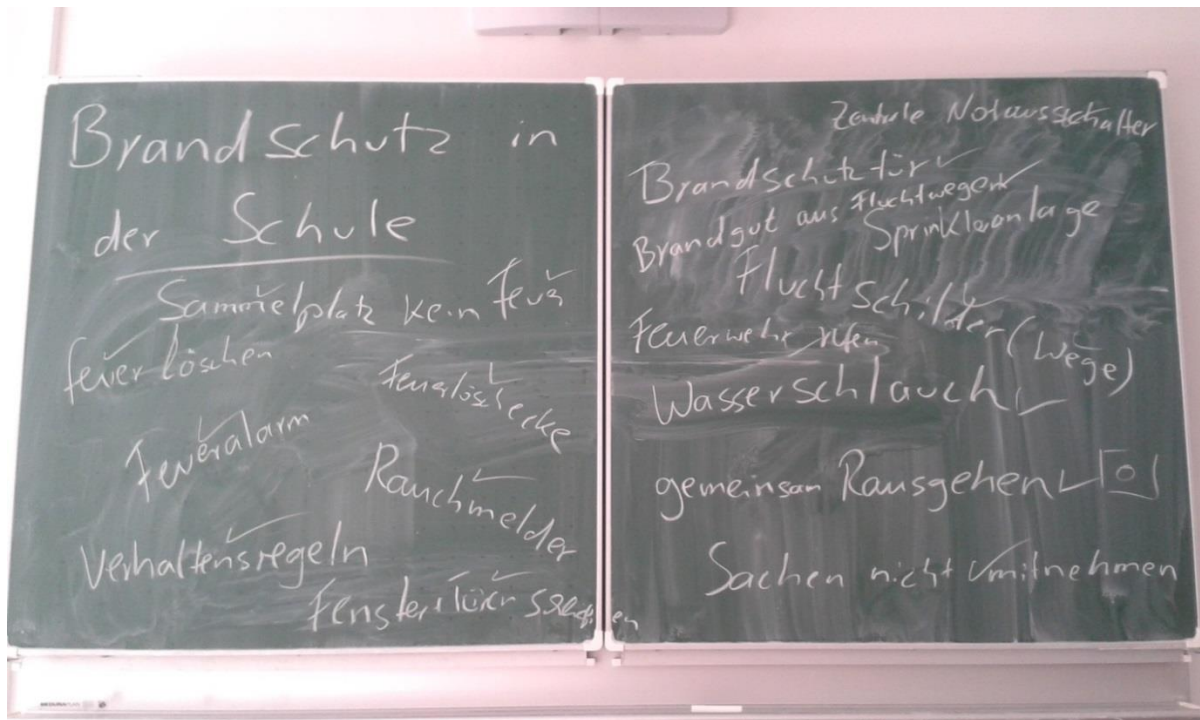 Brandschutz in
der Schule
Sammelplatz kein Feuer
feuer löschen
Feuerlöschecke
Feueralarm
Rauchmelder
Verhaltensregeln
Fenster + Türen
Zentrale Notausschalter
Brandschutztür
Brandgut aus Fluchtwegen
Sprinkleranlage
Flucht Schilder (Wege)
Feuerwehr rufen
Wasserschlauch
gemeinsam Rausgehen
Sachen nicht mitnehmen